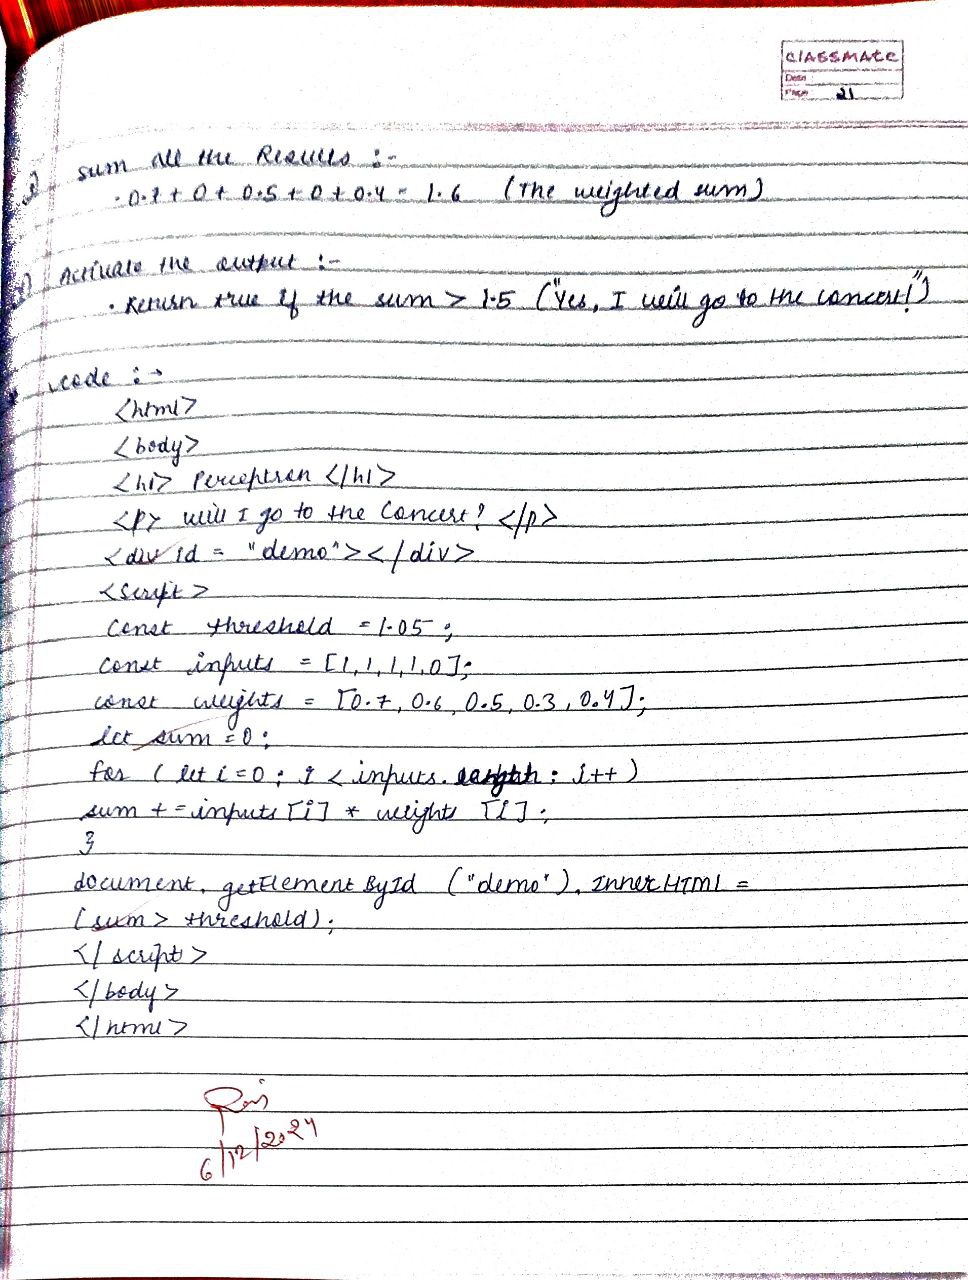 classmate
Date
Page 21
3) sum all the Results :-
• 0.7 + 0 + 0.5 + 0 + 0.4 = 1.6 (The weighted sum)
Activate the output :-
• Return true if the sum > 1.5 ("Yes, I will go to the concert!")
code :→
<html>
<body>
<h1> Perceptron </h1>
<p> will I go to the Concert? </p>
<div id = "demo"></div>
<Script>
Const threshold = 1.05;
const inputs = [1,1,1,1,0];
const weights = [0.7, 0.6, 0.5, 0.3, 0.4];
let sum = 0;
for ( let i = 0 ; i < inputs. length ; i++ )
sum += inputs [i] * weights [i] ;
}
document. getElement ById ("demo"). InnerHTMl =
(sum > threshold);
</ script>
</ body>
</ html>
6/12/2024